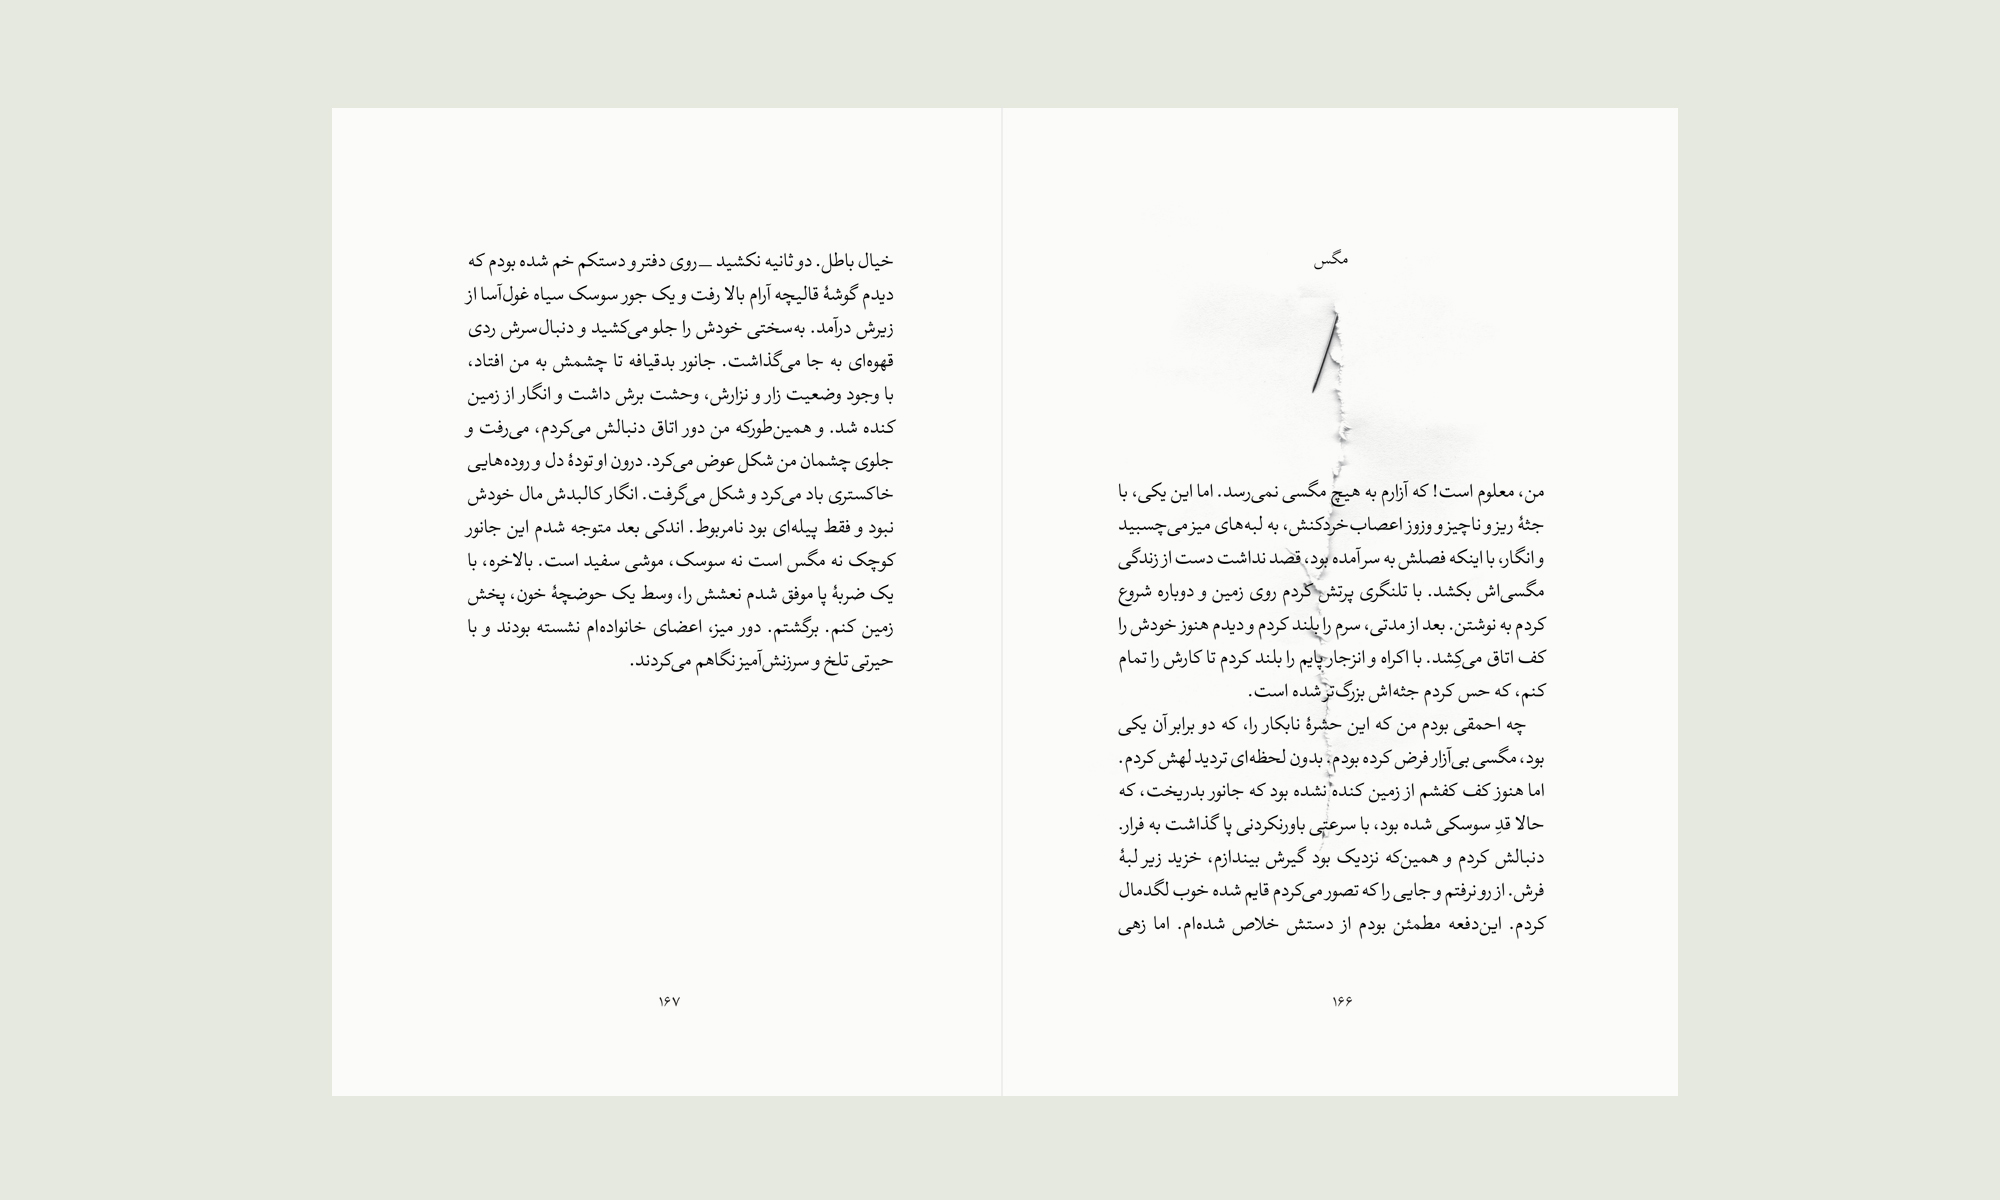 مگس
من، معلوم است! که آزارم به هیچ مگسی نمی‌رسد. اما این یکی، با
جثهٔ ریز و ناچیز و وزوز اعصاب‌خردکنش، به لبه‌های میز می‌چسبید
و انگار، با اینکه فصلش به سر آمده بود، قصد نداشت دست از زندگی
مگسی‌اش بکشد. با تلنگری پرتش کردم روی زمین و دوباره شروع
کردم به نوشتن. بعد از مدتی، سرم را بلند کردم و دیدم هنوز خودش را
کف اتاق می‌کِشد. با اکراه و انزجار پایم را بلند کردم تا کارش را تمام
کنم، که حس کردم جثه‌اش بزرگ‌تر شده است.
چه احمقی بودم من که این حشرهٔ نابکار را، که دو برابر آن یکی
بود، مگسی بی‌آزار فرض کرده بودم. بدون لحظه‌ای تردید لهش کردم.
اما هنوز کف کفشم از زمین کنده نشده بود که جانور بدریخت، که
حالا قدِ سوسکی شده بود، با سرعتی باورنکردنی پا گذاشت به فرار.
دنبالش کردم و همین‌که نزدیک بود گیرش بیندازم، خزید زیر لبهٔ
فرش. از رو نرفتم و جایی را که تصور می‌کردم قایم شده خوب لگدمال
کردم. این‌دفعه مطمئن بودم از دستش خلاص شده‌ام. اما زهی
۱۶۶
خیال باطل. دو ثانیه نکشید ـــ روی دفتر و دستکم خم شده بودم که
دیدم گوشهٔ قالیچه آرام بالا رفت و یک جور سوسک سیاه غول‌آسا از
زیرش درآمد. به‌سختی خودش را جلو می‌کشید و دنبال سرش ردی
قهوه‌ای به جا می‌گذاشت. جانور بدقیافه تا چشمش به من افتاد،
با وجود وضعیت زار و نزارش، وحشت برش داشت و انگار از زمین
کنده شد. و همین‌طورکه من دور اتاق دنبالش می‌کردم، می‌رفت و
جلوی چشمان من شکل عوض می‌کرد. درون او تودهٔ دل و روده‌هایی
خاکستری باد می‌کرد و شکل می‌گرفت. انگار کالبدش مال خودش
نبود و فقط پیله‌ای بود نامربوط. اندکی بعد متوجه شدم این جانور
کوچک نه مگس است نه سوسک، موشی سفید است. بالاخره، با
یک ضربهٔ پا موفق شدم نعشش را، وسط یک حوضچهٔ خون، پخش
زمین کنم. برگشتم. دور میز، اعضای خانواده‌ام نشسته بودند و با
حیرتی تلخ و سرزنش‌آمیز نگاهم می‌کردند.
۱۶۷